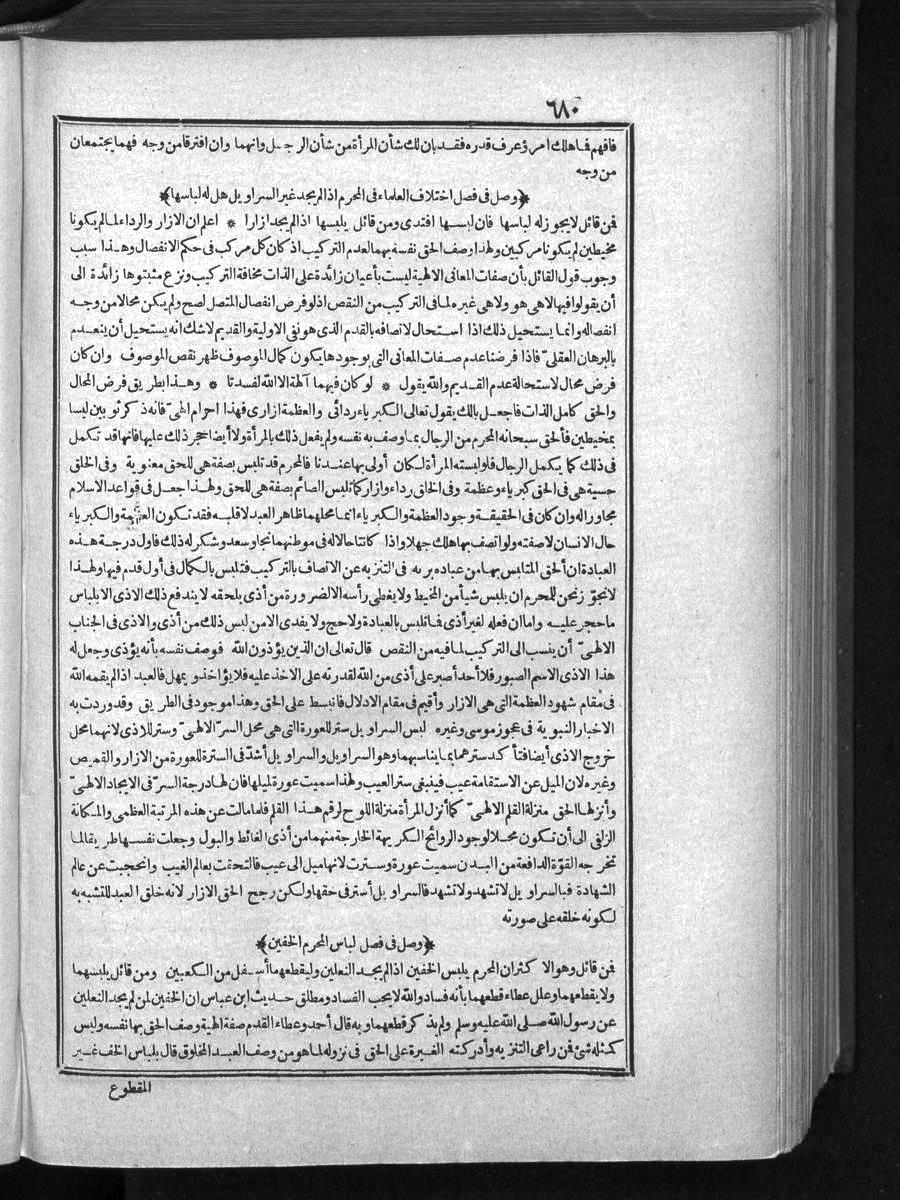 ٦٨٠
فافهم فما هلك امرؤ عرف قدره فقد بان لك شأن المرأة من شأن الرجل وانهما وان افترقا من وجه فهما يجتمعان
من وجه
﴿وصل فى فصل اختلاف العلماء فى المحرم اذا لم يجد غير السراويل هل له لباسها﴾
فمن قائل لا يجوز له لباسها فان لبسها افتدى ومن قائل يلبسها اذا لم يجد ازارا * اعلم ان الازار والرداء لما لم يكونا
مخيطين لم يكونا مركبين ولهذا وصف الحق نفسه بهما لعدم التركيب اذ كان كل مركب فى حكم الانفصال وهذا سبب
وجوب قول القائل بأن صفات المعانى الالهية ليست بأعيان زائدة على الذات مخافة التركيب ونزع مثبتوها زائدة الى
أن يقولوا فيها لا هى هو ولا هى غيره لما فى التركيب من النقص اذ لو فرض انفصال المتصل لصح ولم يكن محالا من وجه
انفصاله وانما يستحيل ذلك اذا استحال لاتصافه بالقدم الذى هو نفى الاولية والقديم لا شك انه يستحيل أن ينعدم
بالبرهان العقلىّ فاذا فرضنا عدم صفات المعانى التى بوجودها يكون كمال الموصوف ظهر نقص الموصوف وان كان
فرض محال لاستحالة عدم القديم والله يقول * لو كان فيهما آلهة الا الله لفسدتا * وهذا بطريق فرض المحال
والحق كامل الذات فاجعل بالك يقول تعالى الكبرياء ردائى والعظمة ازارى فهذا احرام الهىّ فانه ذكر ثوبين ليسا
بمخيطين فألحق سبحانه المحرم من الرجال بما وصف به نفسه ولم يفعل ذلك بالمرأة ولا أيضا حجر ذلك عليها فانها قد تكمل
فى ذلك كما يكمل الرجال فلو لبسته المرأة لكان أولى بها عندنا فالمحرم قد تلبس بصفة هى للحق معنوية وفى الخلق
حسية هى فى الحق كبرياء وعظمة وفى الخلق رداء وازار كما تلبس الصائم بصفة هى للحق ولهذا جعل فى قواعد الاسلام
مجاورا له وان كان فى الحقيقة وجود العظمة والكبرياء انما محلهما ظاهر العبد لا قلبه فقد تكون العظمة والكبرياء
حال الانسان لا صفته ولو اتصف بها هلك جهلا واذا كانتا حالا له فى موطنهما نجا وسعد وشكر له ذلك فاول درجة هذه
العبادة ان ألحق المتلبس بها من عباده بربه فى التنزيه عن الاتصاف بالتركيب فتلبس بالكمال فى أول قدم فيها ولهذا
لا نجوّز نحن للمحرم ان يلبس شيأ من المخيط ولا يغطى رأسه الا لضرورة من أذى يلحقه لا يندفع ذلك الاذى الا بلباس
ما حجر عليه واما ان فعله لغير أذى فما تلبس بالعبادة ولا حج ولا يفدى الا من لبس ذلك من أذى والاذى فى الجناب
الالهىّ أن ينسب الى التركيب لما فيه من النقص قال تعالى ان الذين يؤذون الله فوصف نفسه بأنه يؤذى وجعل له
هذا الاذى الاسم الصبور فلا أحد أصبر على أذى من الله لقدرته على الاخذ عليه فلا يؤاخذ ويمهل فالعبد اذا لم يقمه الله
فى مقام شهود العظمة التى هى الازار وأقيم فى مقام الادلال فانبسط على الحق وهذا موجود فى الطريق وقد وردت به
الاخبار النبوية فى عجوز موسى وغيره لبس السراويل ستر للعورة التى هى محل السرّ الالهىّ وستر للاذى لانهما محل
خروج الاذى أيضا فتأكد سترهما بما يناسبهما وهو السراويل والسراويل أشدّ فى السترة للعورة من الازار والقميص
وغيره لان الميل عن الاستقامة عيب فينبغى ستر العيب ولهذا سميت عورة لميلها فان لها درجة السرّ فى الايجاد الالهىّ
وأنزلها الحق منزلة القلم الالهىّ كما أنزل المرأة منزلة اللوح لرقم هذا القلم فلما مالت عن هذه المرتبة العظمى والمكانة
الزلفى الى أن تكون محلا لوجود الروائح الكريهة الخارجة منهما من أذى الغائط والبول وجعلت نفسها طريقا لما
تخرجه القوّة الدافعة من البدن سميت عورة وسترت لانها ميل الى عيب فالتحقت بعالم الغيب وانحجبت عن عالم
الشهادة فبالسراويل لا تشهد ولا تشهد فالسراويل أستر فى حقها ولكن رجح الحق الازار لانه خلق العبد للتشبه به
لكونه خلقه على صورته
﴿وصل فى فصل لباس المحرم الخفين﴾
فمن قائل وهو الاكثر ان المحرم يلبس الخفين اذا لم يجد النعلين وليقطعهما أسفل من الكعبين ومن قائل يلبسهما
ولا يقطعهما وعلل عطاء قطعهما بأنه فساد والله لا يحب الفساد ومطلق حديث ابن عباس ان الخفين لمن لم يجد النعلين
عن رسول الله صلى الله عليه وسلم ولم يذكر قطعهما وبه قال أحمد وعطاء القدم صفة الهية وصف الحق بها نفسه وليس
كمثله شئ فمن راعى التنزيه وأدركته الغيرة على الحق فى نزوله لما هو من وصف العبد المخلوق قال بلباس الخف غير
المقطوع